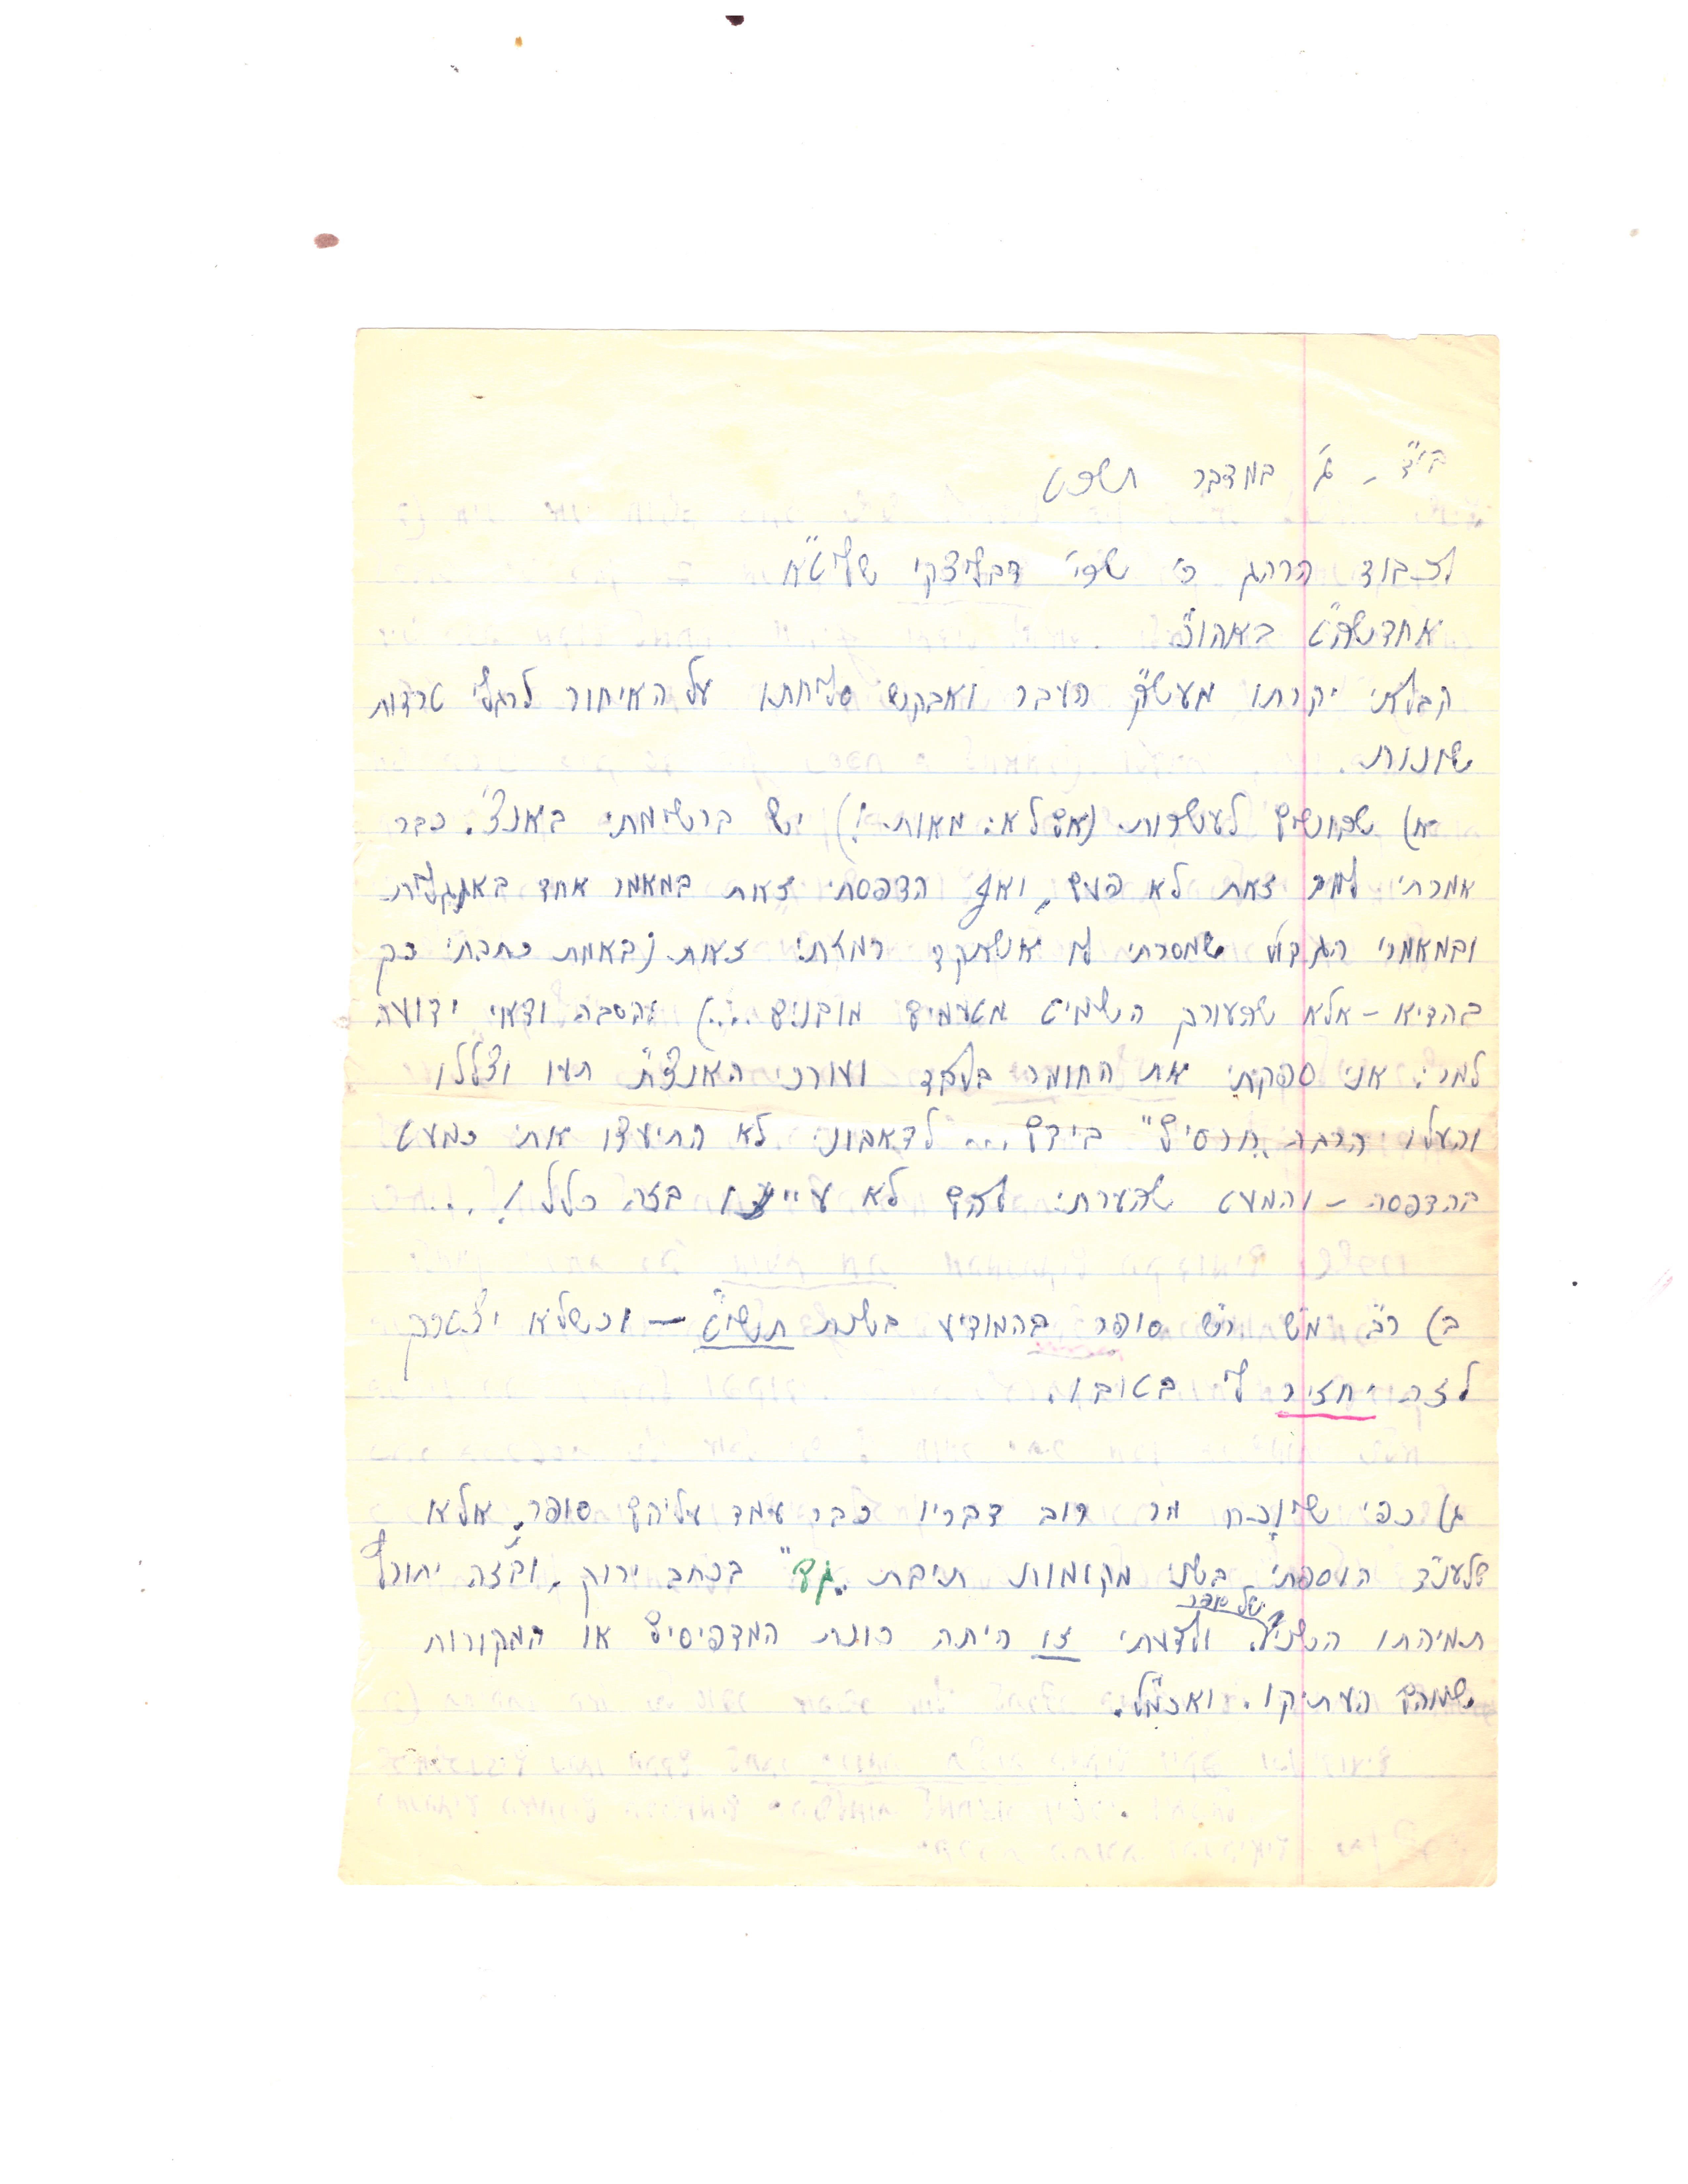 בי"ד - ג' במדבר תשכט
לכבוד הרהג ר' שרי' דבליצקי שליט"א
אחדשה"ט באהו"צ
קבלתי יקרתו מעש"ק העבר ואבקש סליחתו על האיחור לרגלי טרדות
שונות.
א) שבושים לעשרות (אם לא: מאות!) יש ברשימתי באנצ'. כבר
אמרתי למר זאת לא פעם, ואף הדפסתי זאת במאמר אחד באנגלית
ובמאמרי הגדול שמסרתי לו אשתקד רמזתי זאת (באמת כתבתי כן
בהדיא - אלא שהעורך השמיט מטעמים מובנים...) והסבה ודאי ידועה
למר: אני ספקתי את החומר בלבד ועורכי האנצ"ת תעו וצללו
והעלו הרבה "חרסים" בידם... לדאבוני לא התיעצו אתי כמעט
בהדפסה - והמעט שהערתי להם לא עיינו בזה כלל!...
ב) רצ"ב מ"ש ר"ש סופר בהמודיע בשנת תשי"ט - וכשלא יצטרך
לזה יחזיר לי בטובו.
ג) כפי שיוכח מר רוב דבריו כבר עמד עליהם סופר, אלא
שלענ"ד הוספתי בשני מקומות תיבת "גם" בכתב ירוק, ובזה יתורץ
תמיהתו השניה של סופר. ולדעתי זו היתה כונת המדפיסים או המקורות
שמהם העתיקו. ואכמ"ל.